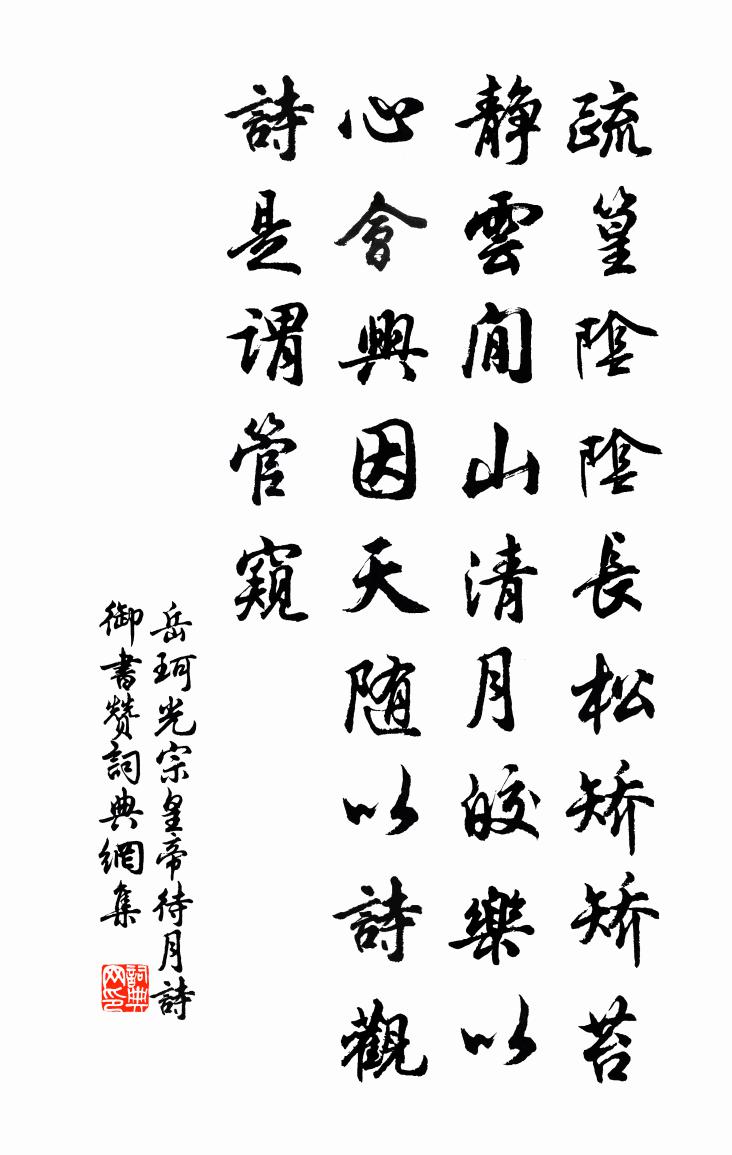 疏篁陰陰長松矫矫苔
靜雲閒山清月皎樂以
心會興因天随以詩觀
詩是谓管窺
岳珂光宗皇帝待月詩
御書赞詞典網集
詞典网印